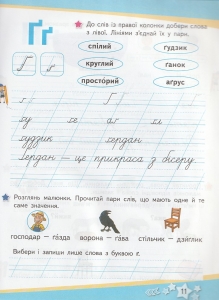 Ґ ґ
До слів із правої колонки добери слова
з лівої. Лініями з'єднай їх у пари.
спілий ґудзик
круглий ґанок
просторий аґрус
Ґ ґ
ґ Ґ
ґудзик ґердан
Ґердан – ще прикраса з бісеру
Розглянь малюнки. Прочитай пари слів, що мають одне й те
саме значення.
господар – ґазда ворона – ґава стільчик – дзиґлик
Вибери і запиши лише слова з буквою ґ.
11